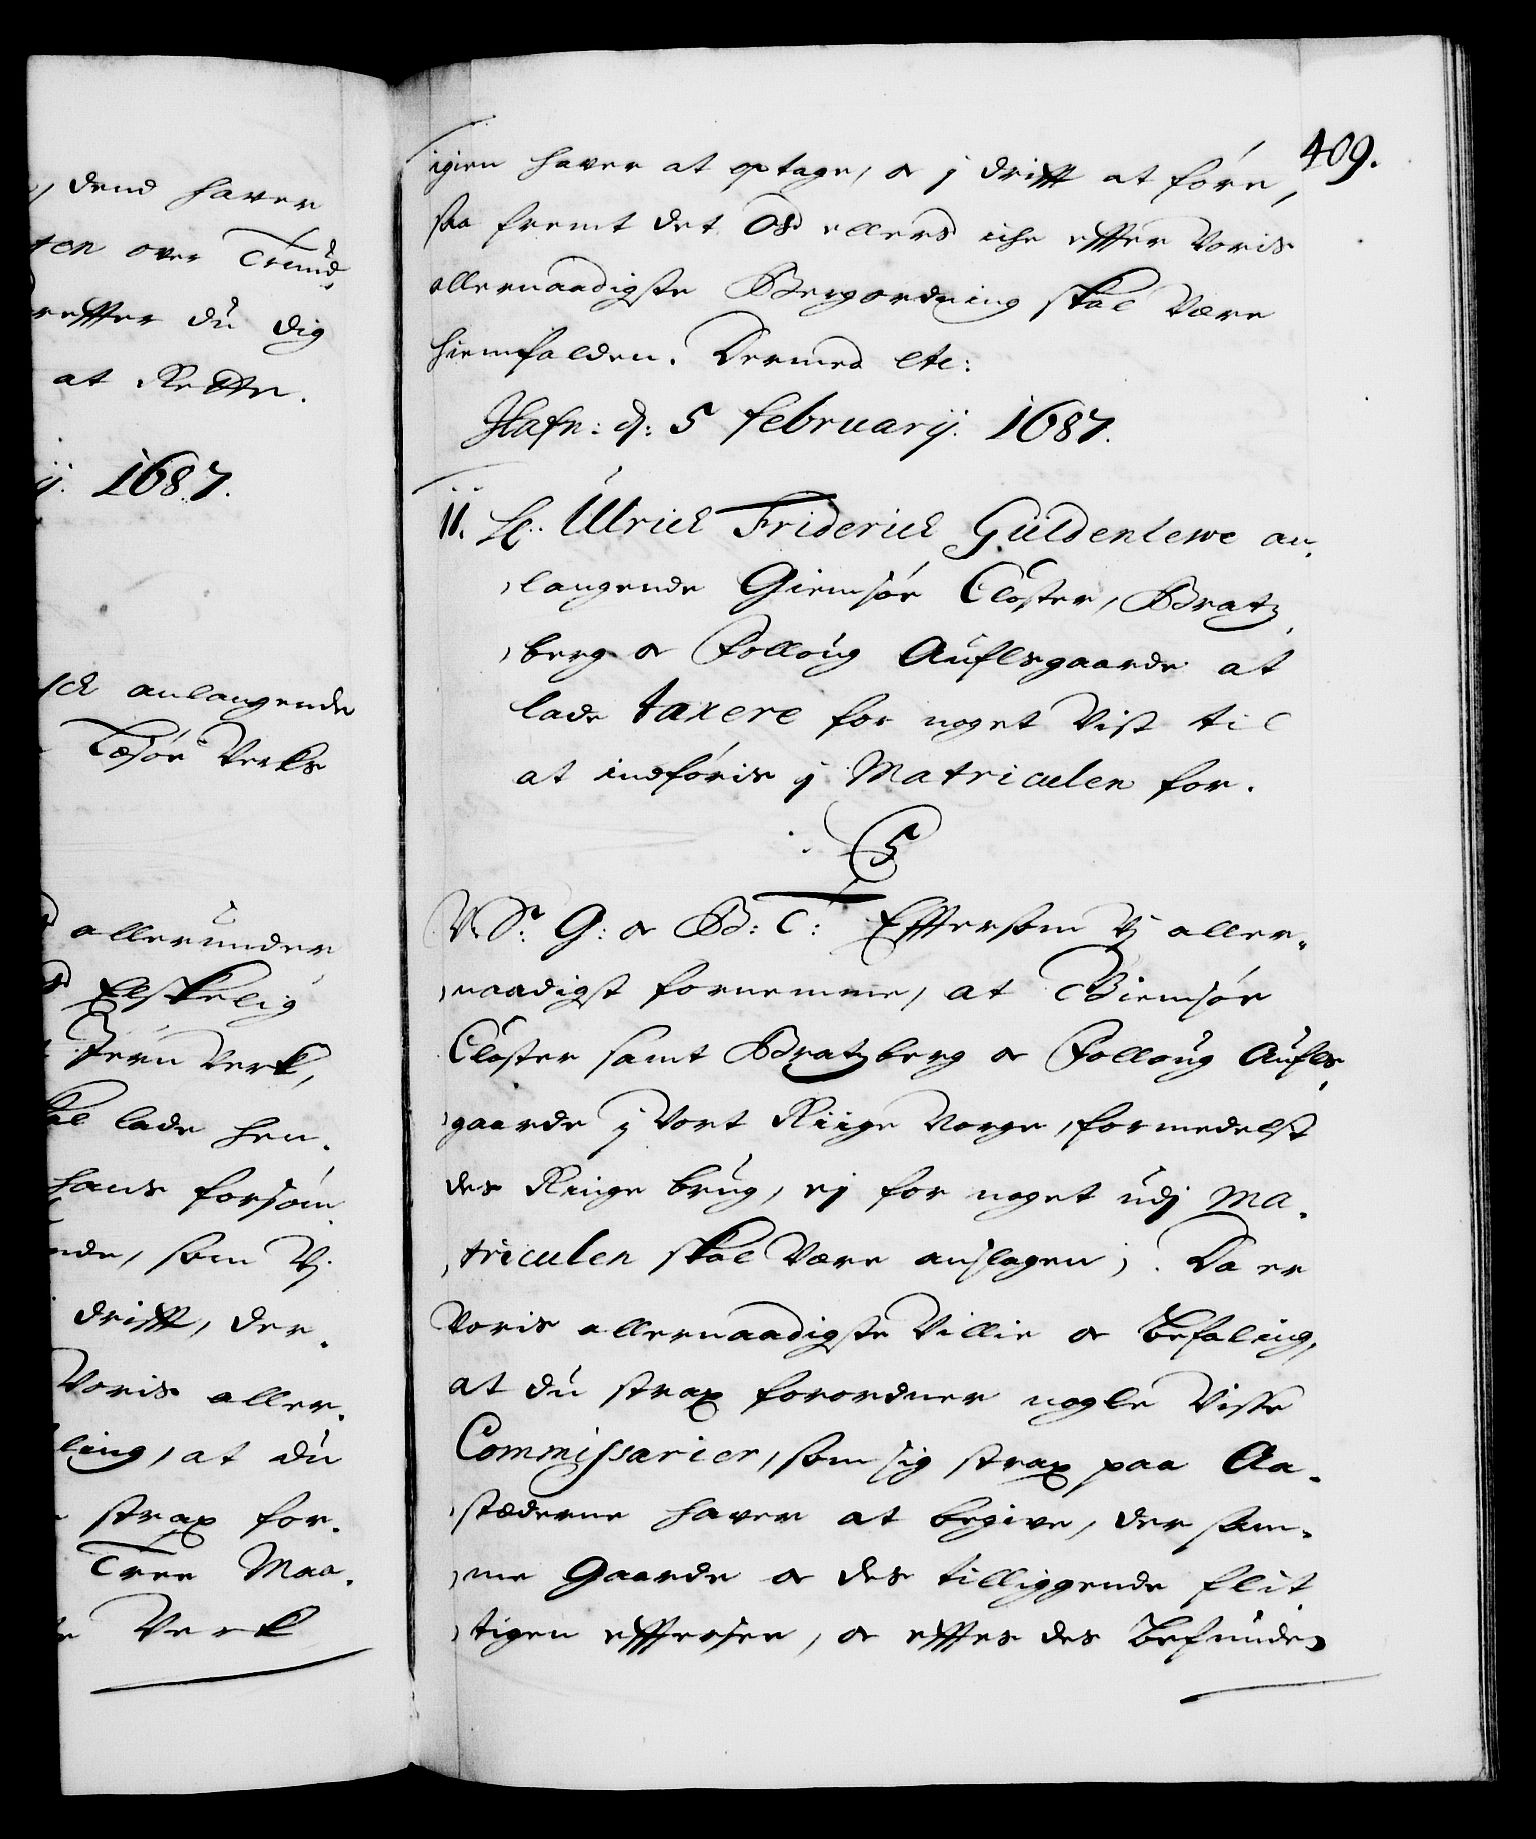 dend haver
ten over Trund,
reffter du dig
at Rette.
ij. 1687.
anlangende
Læsøe Verks
allerunder
Elskelig
Jern Verk,
lade hen,
hans forsøm,
nde, som Vj
drifft, der,
Voris aller,
ling, at du
strax for,
Tree Maa,
Verk
409.
igien haver at optage, oc j drifft at føre,
saa fremt det Os ellers iche effter Voris
allernaadigste Bergordning skal Være
hiemfalden. Dermed etc:
Hafn: d: 5 februarij. 1687.
11. Hr. Ulrick Friderick Güldenlewe an,
,langende Giemsøe Closter, Bratz,
,berg oc Folloug Auflsgaarde at
lade taxere for noget Vist til
at indføris j Matriculen for.
C5
V. Sr: G: oc B: C: Efftersom Vj aller,
,naadigst fornemme, at Giemsøe
Closter samt Bratzberg oc Folloug Aufls,
,gaarde j Vort Riige Norge, formedelst
des Ringe brug, ej for noget udj Ma,
,triculen skal Være anslagen; Da er
Voris allernaadigste Villie oc Befaling,
at du strax forordner nogle Visse
Commissarier, som sig strax paa Aa,
,stæderne haver at begive, der sam,
,me Gaarde oc des tilliggende flit,
,tigen effterseer, oc effter des Befunde,